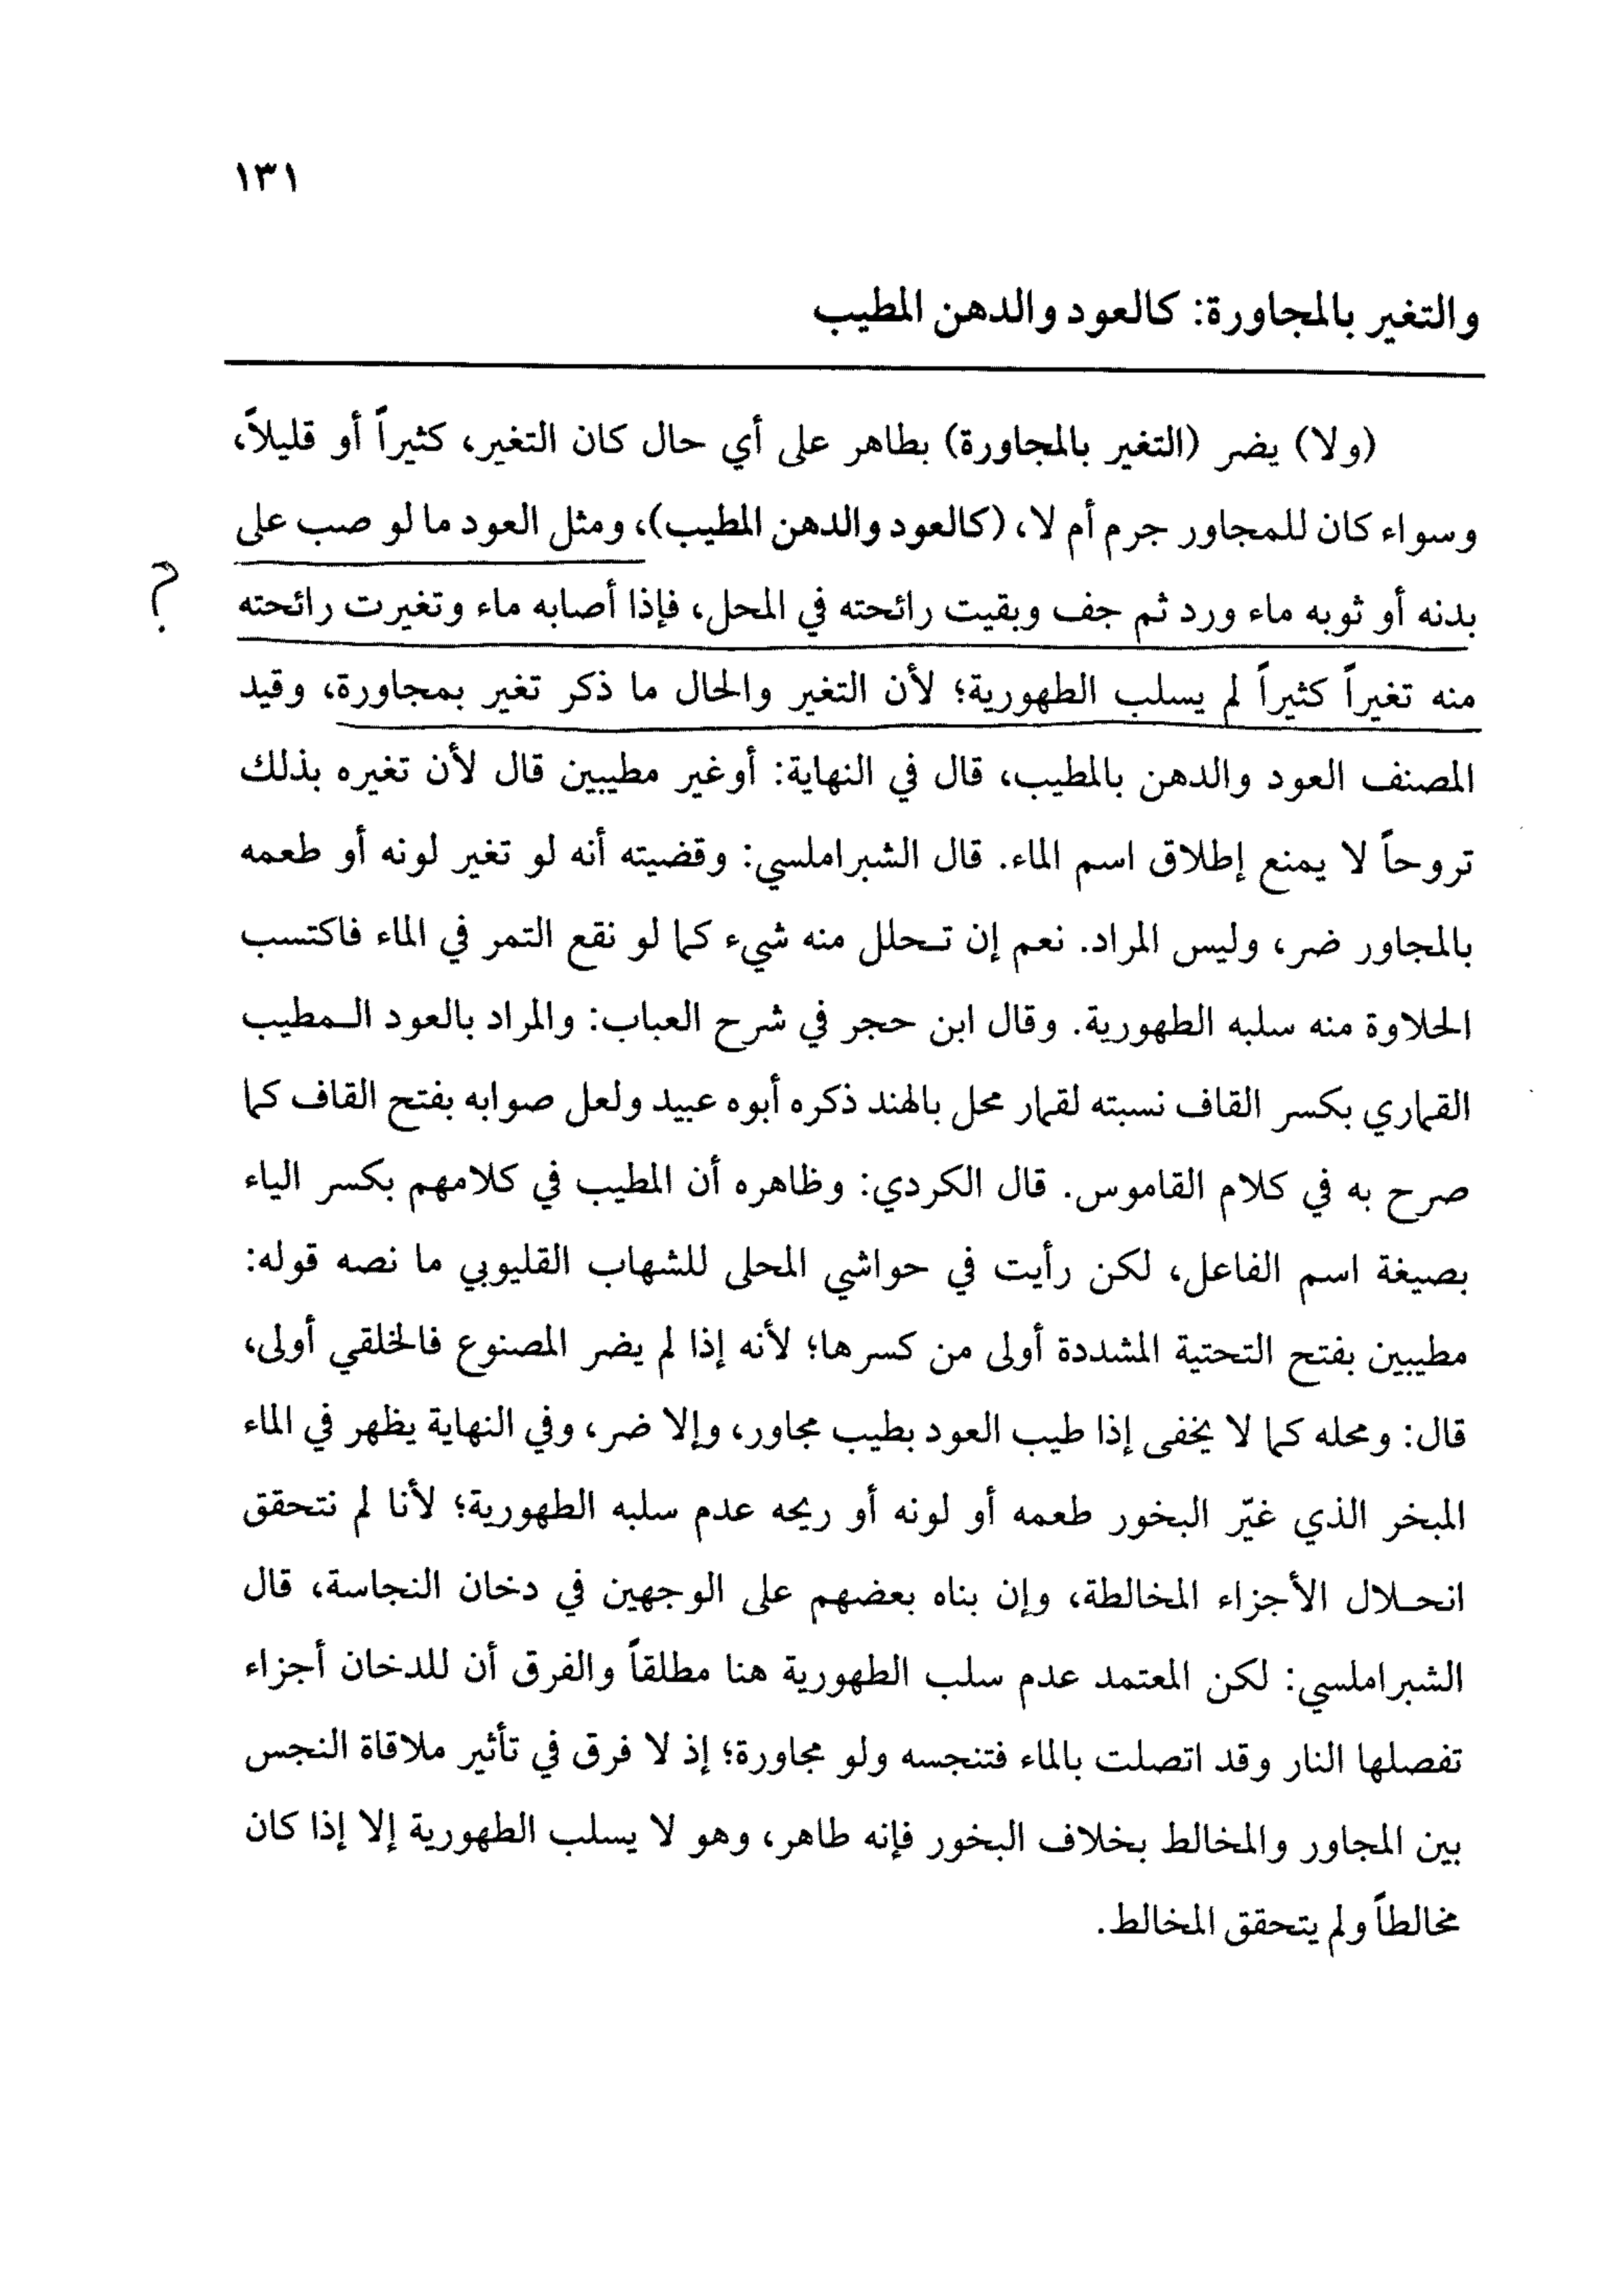 ١٣١
والتغير بالمجاورة: كالعود والدهن المطيب
(ولا) يضر (التغير بالمجاورة) بطاهر على أي حال كان التغير، كثيراً أو قليلاً،
وسواء كان للمجاور جرم أم لا، (كالعود والدهن المطيب)، ومثل العود ما لو صب على
بدنه أو ثوبه ماء ورد ثم جف وبقيت رائحته في المحل، فإذا أصابه ماء وتغيرت رائحته
؟
منه تغيراً كثيراً لم يسلب الطهورية؛ لأن التغير والحال ما ذكر تغير بمجاورة، وقيد
المصنف العود والدهن بالمطيب، قال في النهاية: أوغير مطيبين قال لأن تغيره بذلك
تروحاً لا يمنع إطلاق اسم الماء. قال الشبراملسي: وقضيته أنه لو تغير لونه أو طعمه
بالمجاور ضر، وليس المراد. نعم إن تـحلل منه شيء كما لو نقع التمر في الماء فاكتسب
الحلاوة منه سلبه الطهورية. وقال ابن حجر في شرح العباب: والمراد بالعود الـمطيب
القماري بكسر القاف نسبته لقمار محل بالهند ذكره أبوه عبيد ولعل صوابه بفتح القاف كما
صرح به في كلام القاموس. قال الكردي: وظاهره أن المطيب في كلامهم بكسر الياء
بصيغة اسم الفاعل، لكن رأيت في حواشي المحلى للشهاب القليوبي ما نصه قوله:
مطيبين بفتح التحتية المشددة أولى من كسرها؛ لأنه إذا لم يضر المصنوع فالخلقي أولى،
قال: ومحله كما لا يخفى إذا طيب العود بطيب مجاور، وإلا ضر، وفي النهاية يظهر في الماء
المبخر الذي غيّر البخور طعمه أو لونه أو ريحه عدم سلبه الطهورية؛ لأنا لم نتحقق
انحـلال الأجزاء المخالطة، وإن بناه بعضهم على الوجهين في دخان النجاسة، قال
الشبراملسي: لكن المعتمد عدم سلب الطهورية هنا مطلقاً والفرق أن للدخان أجزاء
تفصلها النار وقد اتصلت بالماء فتنجسه ولو مجاورة؛ إذ لا فرق في تأثير ملاقاة النجس
بين المجاور والمخالط بخلاف البخور فإنه طاهر، وهو لا يسلب الطهورية إلا إذا كان
مخالطاً ولم يتحقق المخالط.